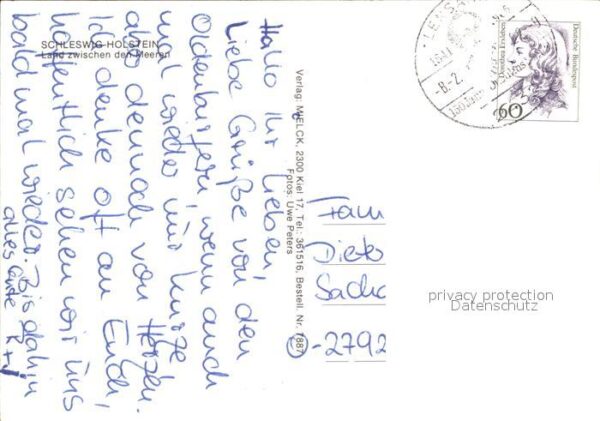 SCHLESWIG-HOLSTEIN
Land zwischen den Meeren
Hallo Ihr Lieben,
Liebe Grüße von den
Oldenburgern, wenn auch
mal wieder nur kurze
aber dennoch von Herzen.
Ich denke oft an Euch,
hoffentlich sehen wir uns
bald mal wieder. Bis dahin
alles Gute
Verlag: MIELCK, 2300 Kiel 17, Tel.: 361516, Bestell. Nr. 1887
Fotos: Uwe Peters
Fam
Dieter
-2792
Deutsche Bundespost
60
LENSAHN
-8.-2.
150 Jahre
privacy protection
Datenschutz